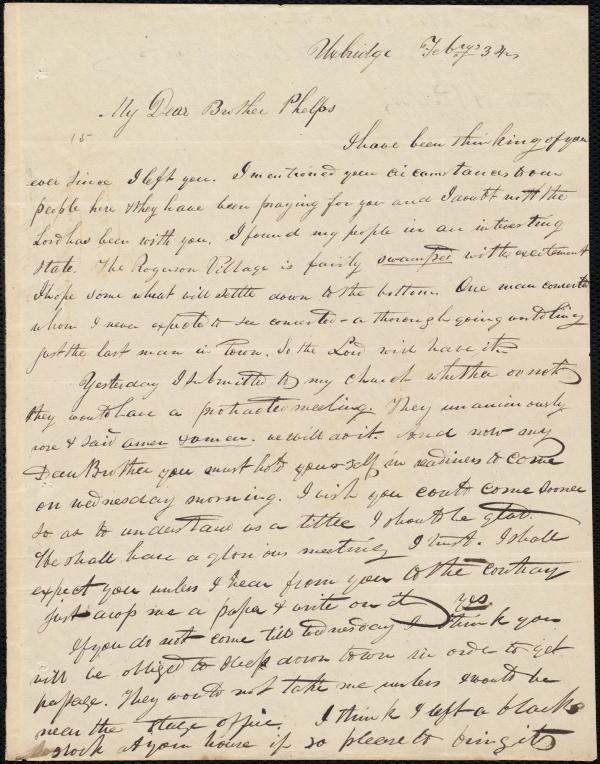 Uxbridge Feb 34
My Dear Brother Phelps
15
I have been thinking of you
ever since I left you. I mentioned your circumstances to our
people here & they have been praying for you and I doubt not the
Lord has been with you. I found my people in an interesting
state. The Rogerson Village is fairly swamped with excitement
I hope some what will settle down to the bottom. One man converted
whom I never expected to see converted - a thorough going
just the last man in Town. So the Lord will have it.
Yesterday I submitted to my church whether or not
they would have a protracted meeting. They unanimously
rose & said amen & amen. we will do it. And now my
Dear Brother you must hold yourself in readiness to come
on wednesday morning. I wish you could come sooner
so as to understand us a little I should be glad.
We shall have a glorious meeting I trust. I shall
expect you unless I hear from you to the contrary
just drop me a paper & write on it yes
If you do not come till Wednesday I think you
will be obliged to sleep down town in order to get
passage. They would not take me unless I would be
near the stage office I think I left a black
stock at your house if so please to bring it